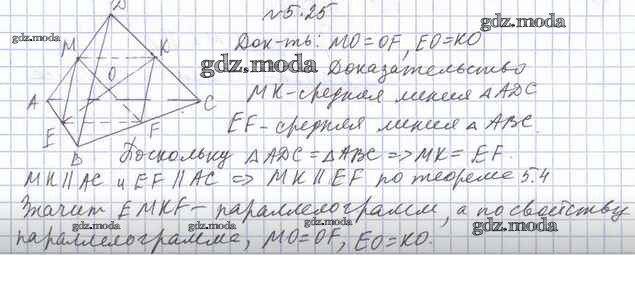 N5.25
D
gdz.moda
gdz.moda
Док-ть: MO=OF, EO=KO
M
K
O
gdz.moda Доказательство
A
C
MK-средная линия △ADC
E
F
EF-средная линия △ABC.
B
Поскольку △ADC=△ABC => MK=EF.
gdz.moda
MK∥AC и EF∥AC => MK∥EF по теореме 5.4
Значит EMKF-параллелограмм, а по свойству
gdz.moda
gdz.moda
gdz.moda
параллелограмма, MO=OF, EO=KO.